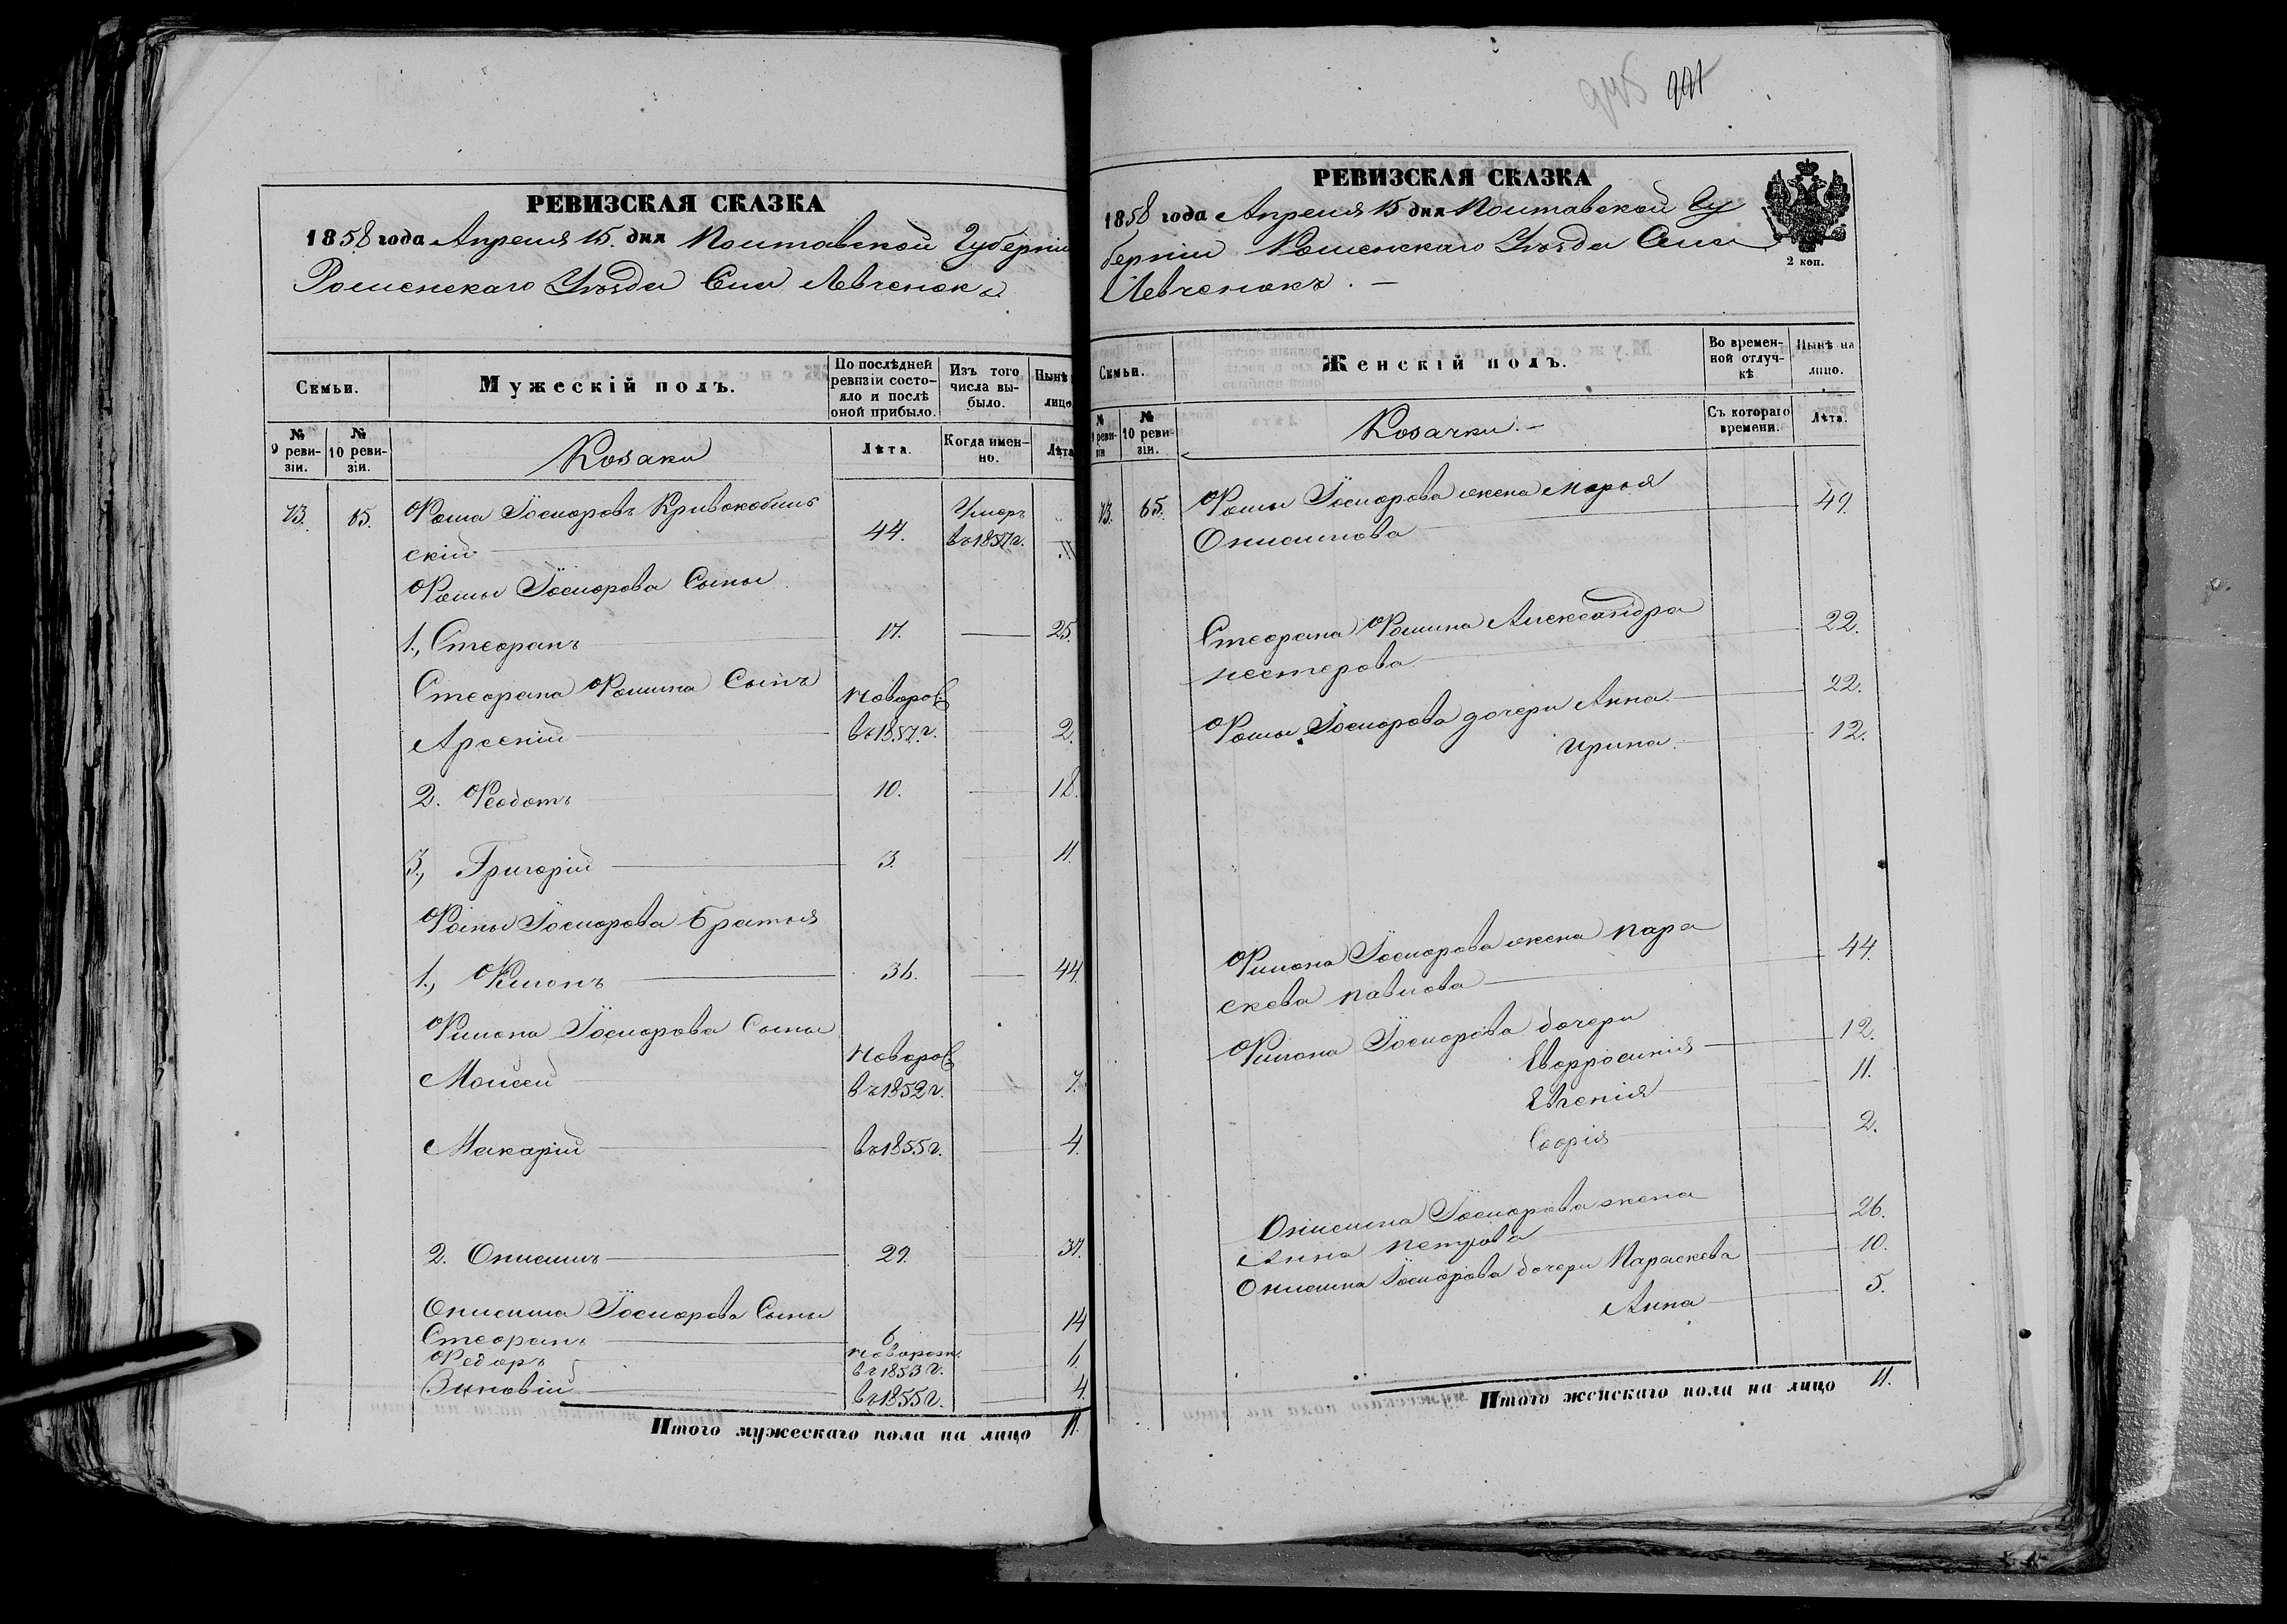 945 991
РЕВИЗСКАЯ СКАЗКА
1858 года Апреля 15. дня Полтавской Губерніи
Роменскаго Уѣзда Села Левченокъ
Семьи.
Мужескій полъ.
По послѣдней ревизіи состояло и послѣ оной прибыло.
Изъ того числа выбыло.
Нынѣ лицо
№ 9 ревизіи.
№ 10 ревизіи.
Козаки
Лѣта.
Когда именно.
Лѣта
73. 65. Фома Іосифовъ Кривокобыль
скій 44. Умеръ въ 1857 г.
Фомы Іосифова Сыны
1., Стефанъ 17. 25.
Стефана Фомина Сынъ новорож
Арсеній въ 1857 г. 2.
2. Феодотъ 10. 18.
3., Григорій 3. 11.
Фомы Іосифова Братья
1., Филонъ 36. 44.
Филона Іосифова Сыны новорож
Моисей въ 1852 г. 7.
Макарій въ 1855 г. 4.
2. Онисимъ 29. 37.
Онисима Іосифова Сыны
Стефанъ 6 14
Федоръ новорож. въ 1853 г. 6.
Зиновій въ 1855 г. 4.
Итого мужескаго пола на лицо 11.
РЕВИЗСКАЯ СКАЗКА
1858 года Апреля 15 дня Полтавской Гу
берніи Роменскаго Уѣзда Села
Левченокъ. —
2 коп.
Семьи.
Женскій полъ.
Во временной отлучкѣ
Нынѣ на лицо.
№ 9 ревизіи
№ 10 ревизіи.
Козачки. —
Съ котораго времени.
Лѣта.
73. 65. Фомы Іосифова жена Марья
Онисимова 49.
Стефана Фомина Александра 22.
нестерова
Фомы Іосифова дочери Анна 22.
Ирина 12.
Филона Іосифова жена пара
скева павлова 44.
Филона Іосифова дочери
Евфросинія 12.
Евгенія 11.
Софія 2.
Онисима Іосифова жена
Анна петрова 26.
Онисима Іосифова дочери Параскева 10.
Анна 5.
Итого женскаго пола на лицо 11.